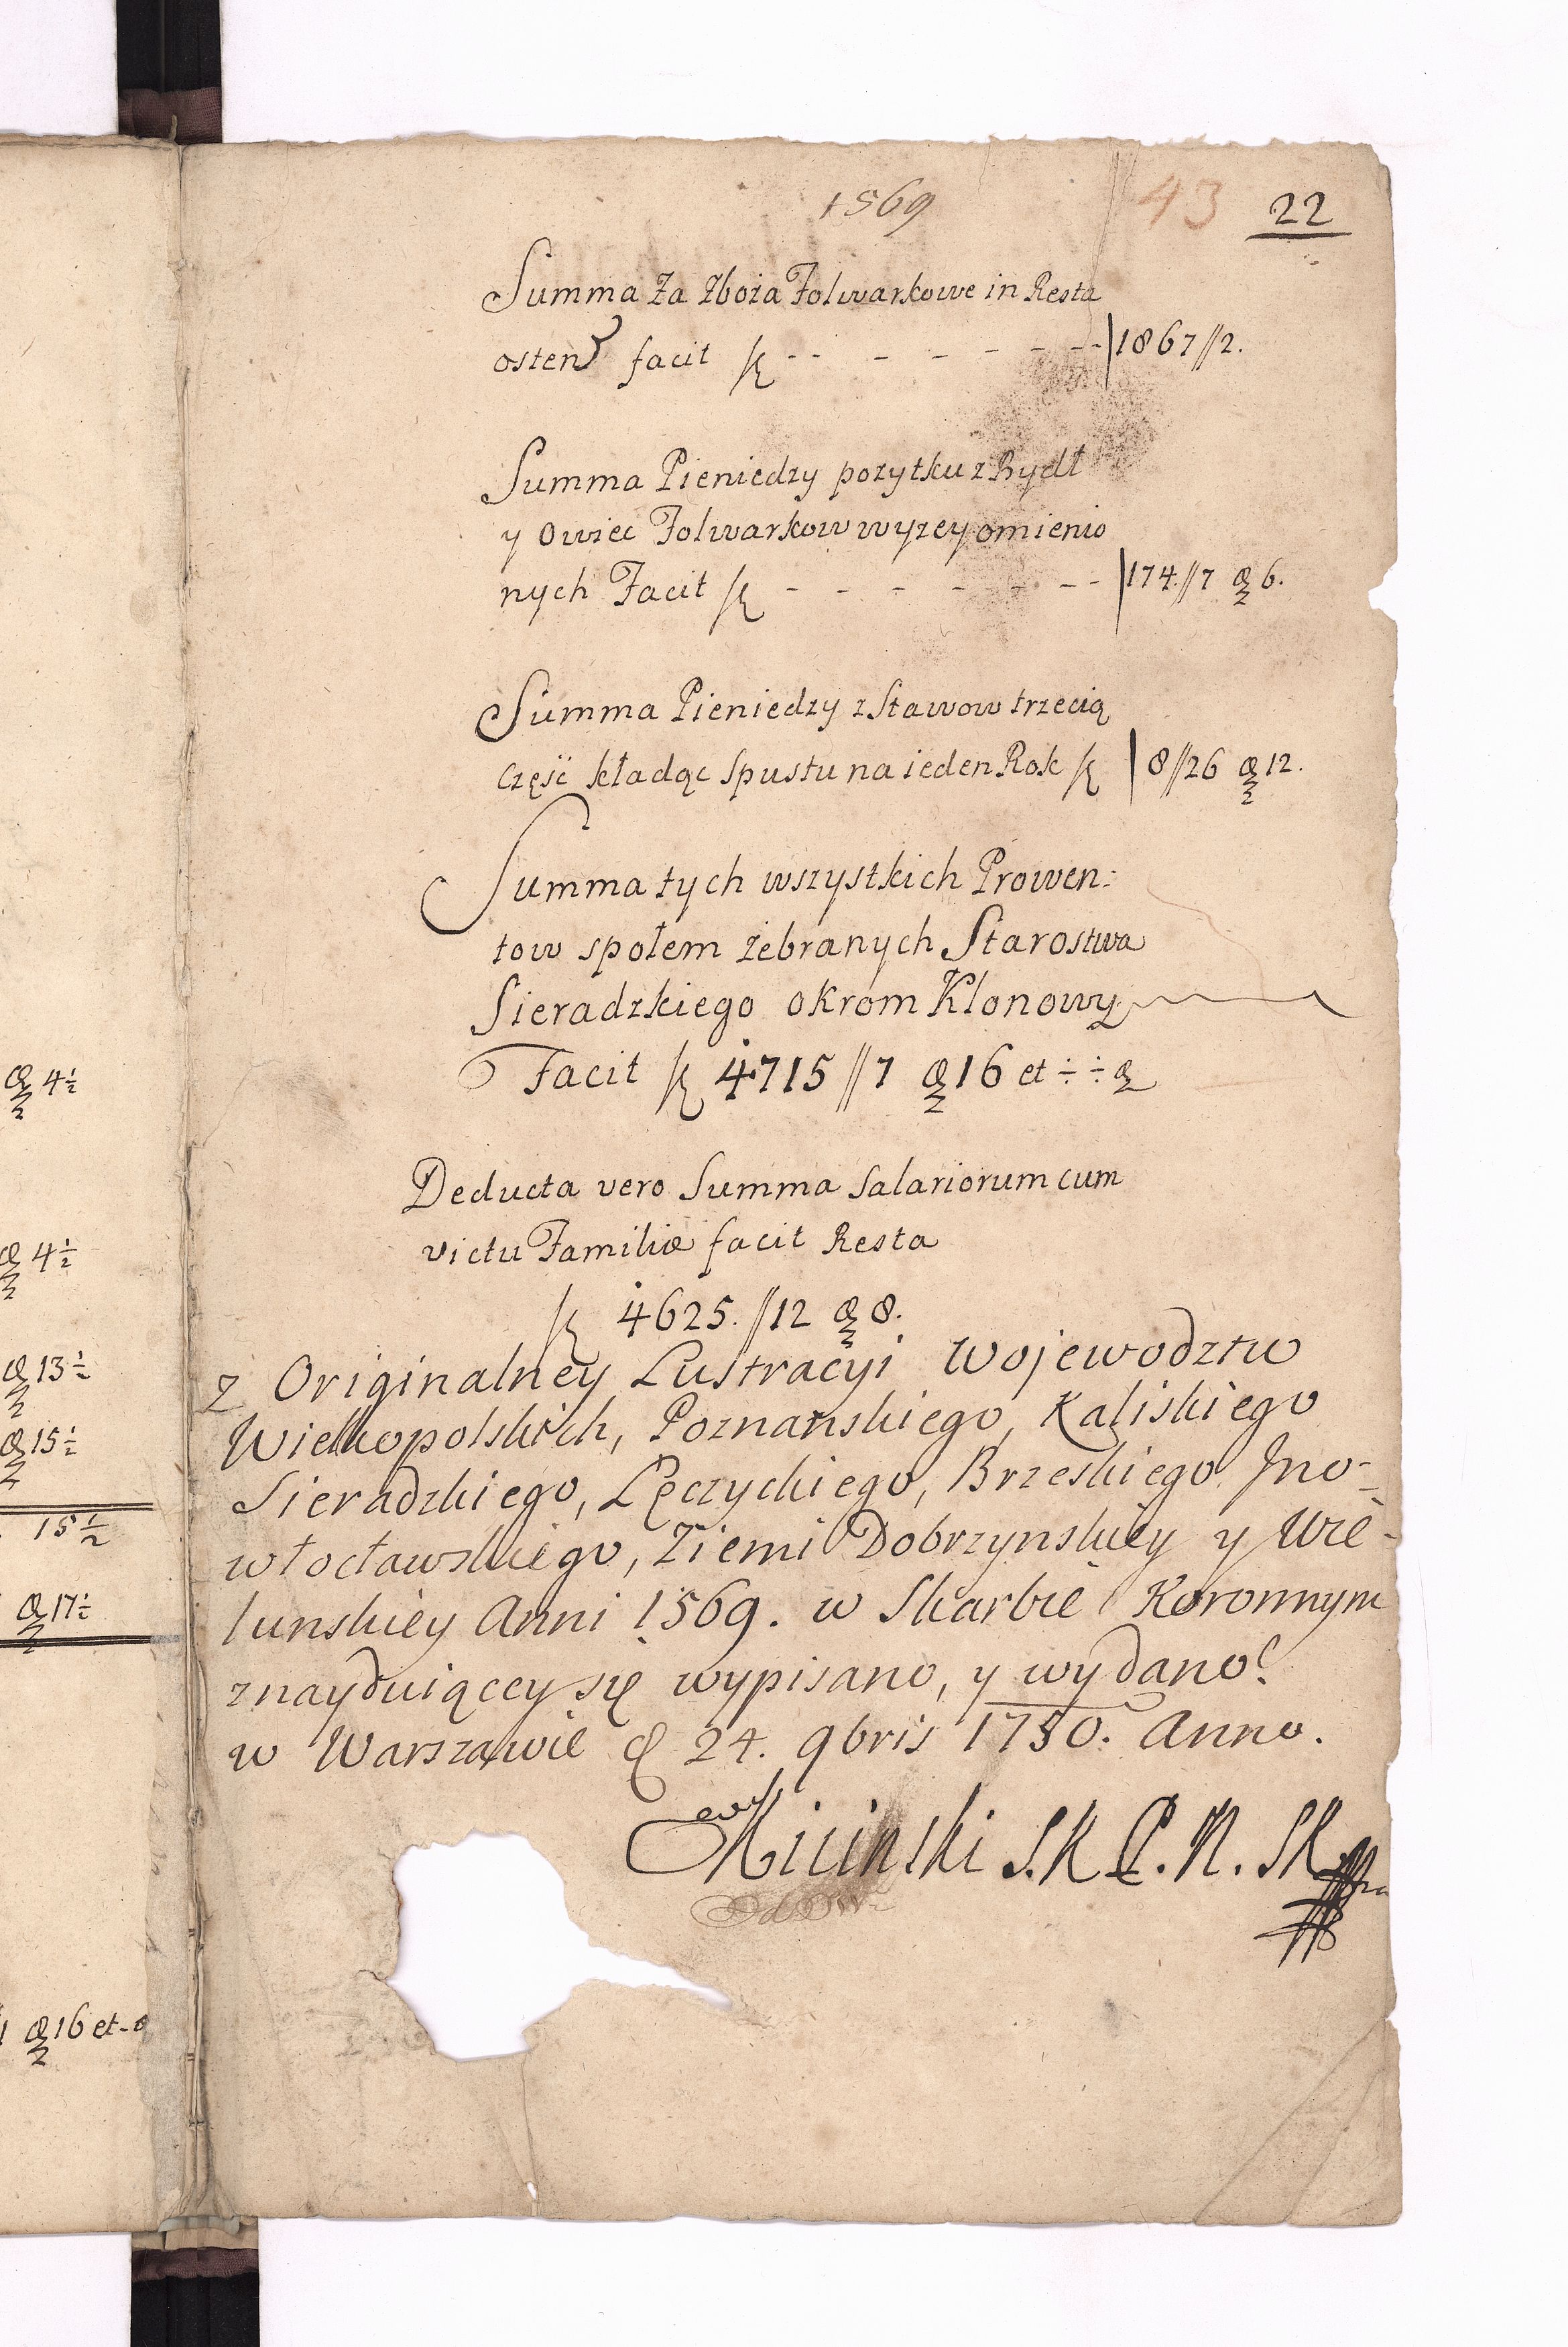 4 1/2
4 1/2
13 1/2
15 1/2
15 1/2
17 1/2
16 et
1569
43 22
Summa Za Zboża Folwarkowe in Resta
osten facit 1867//2.
Summa Pieniedzy pozytku z Bydł
y Owiec Folwarkow wyzey omienio
nych Facit 174.//7 6.
Summa Pieniedzy z Stawow trzecią
Część kładąc Spustu na ieden Rok 8//26 12.
Summa tych wszystkich Prowen:
tow społem zebranych Starostwa
Sieradzkiego okrom Klonowy
Facit 4715//7 16 et
Deducta vero Summa Salariorum cum
victu Familiæ facit Resta
4625.//12 8.
z Originalney Lustracyi Wojewodztw
Wielkopolskich, Poznanskiego, Kaliskiego
Sieradzkiego, Lęczyckiego, Brzeskiego Jno-
włocławskiego, Ziemi Dobrzynskiey y Wie-
lunskiey Anni 1569. w Skarbie Koronnym
znayduiącey się wypisano, y wydano
w Warszawie 24. 9bris 1750. Anno.
Micinski S.K P. N. SK